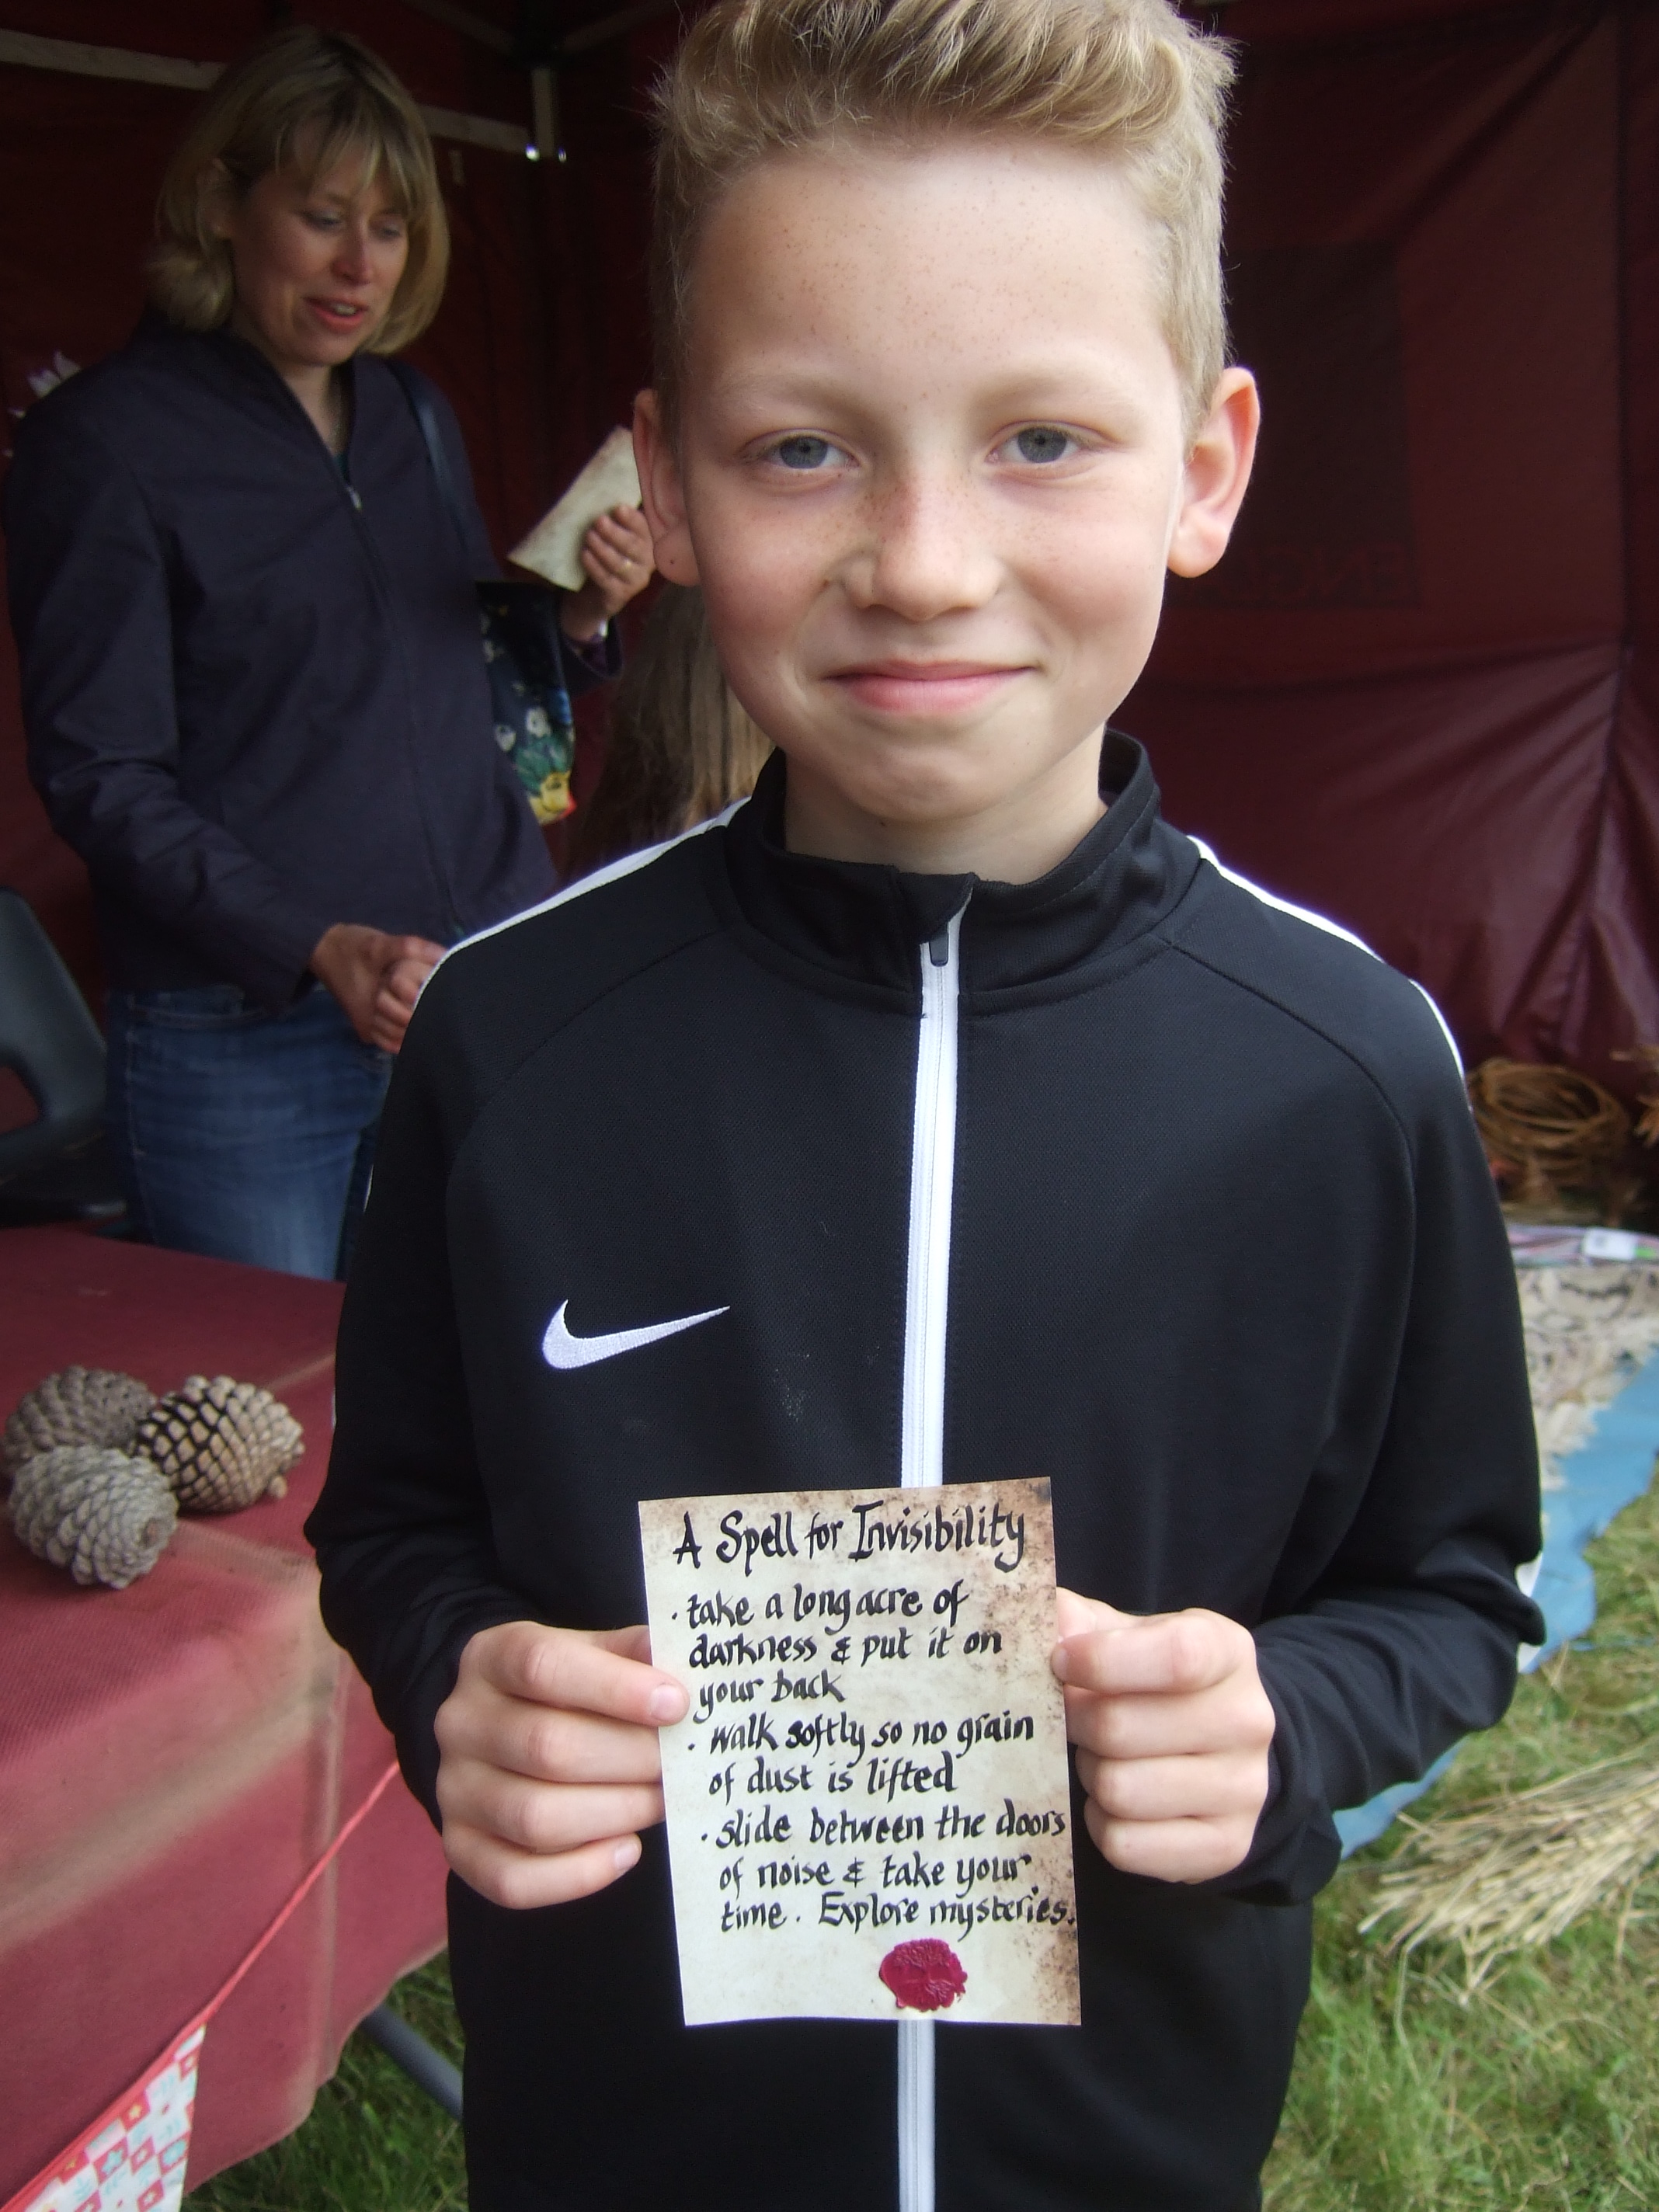 A Spell for Invisibility
· take a long acre of
darkness & put it on
your back
· walk softly so no grain
of dust is lifted
· slide between the doors
of noise & take your
time. Explore mysteries.